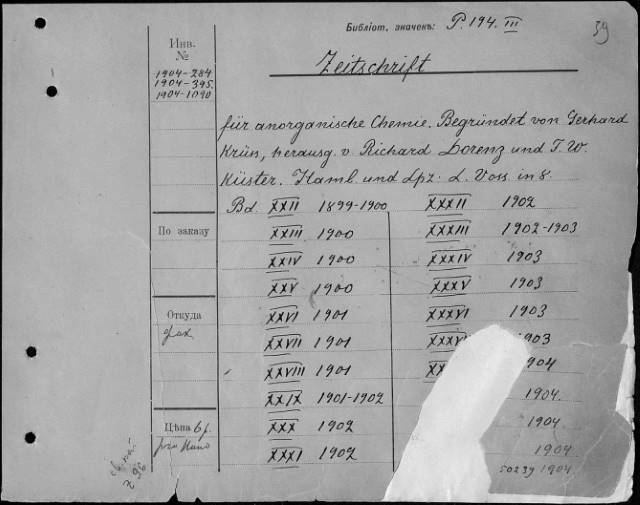 Библіот. значекъ: P. 194. III
59
Инв.
№
1904-284
1904-395.
1904-1090
Zeitschrift
für anorganische Chemie. Begründet von Gerhard
Krün, herausg. v. Richard Lorenz und F. W.
Küster. Hamb. und Lpz. L. Voss. in 8.
Bd. XXII 1899-1900 XXXII 1902
XXIII 1900 XXXIII 1902-1903
По заказу
XXIV 1900 XXXIV 1903
XXV 1900 XXXV 1903
Откуда
XXVI 1901 XXXVI 1903
XXVII 1901 1903
XXVIII 1901 1904
XXIX 1901-1902 1904.
Цѣна 6 р.
XXX 1902 1904.
XXXI 1902 1904
50239 1904.